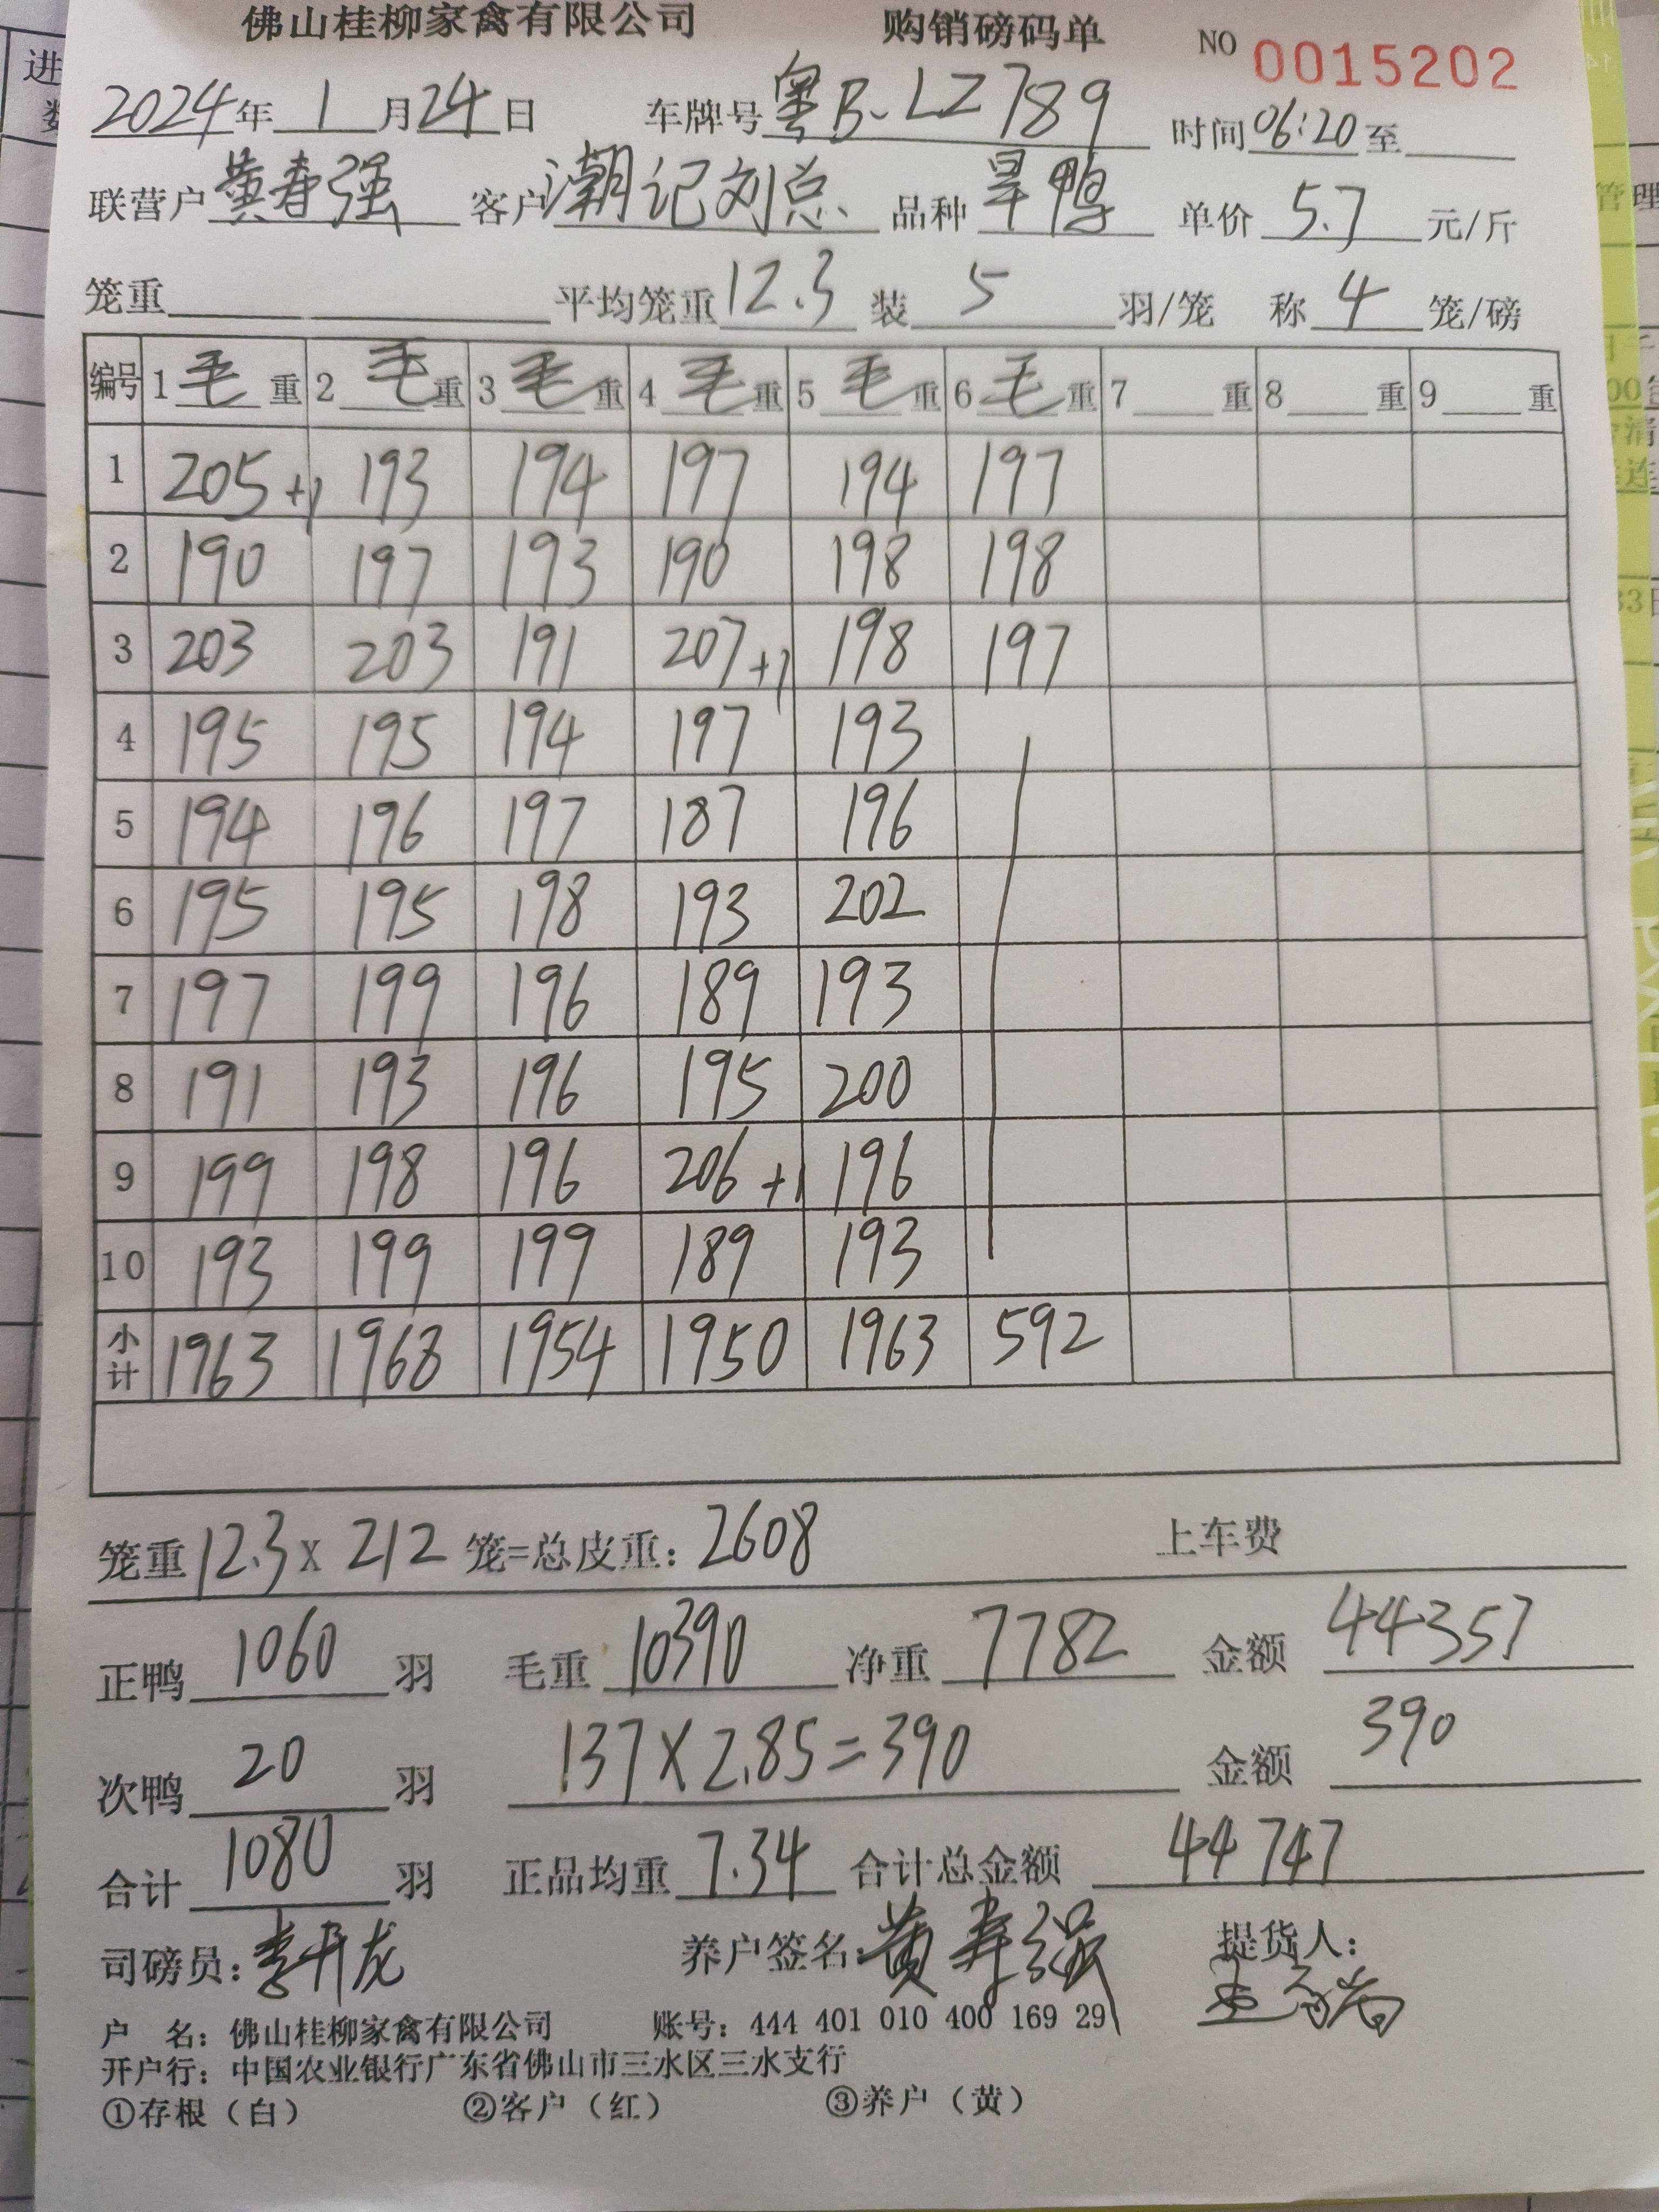 佛山桂柳家禽有限公司 购销磅码单 NO 0015202
2024年 1 月 24 日 车牌号 粤B-LZ789 时间 06:20 至
联营户 黄寿强 客户 潮记刘总 品种 旱鸭 单价 5.7 元/斤
笼重 平均笼重 12.3 装 5 羽/笼 称 4 笼/磅
编号 1 毛 重 2 毛 重 3 毛 重 4 毛 重 5 毛 重 6 毛 重 7 重 8 重 9 重
1 205+1 193 194 197 194 197
2 190 197 193 190 198 198
3 203 203 191 207+1 198 197
4 195 195 194 197 193
5 194 196 197 187 196
6 195 195 198 193 202
7 197 199 196 189 193
8 191 193 196 195 200
9 199 198 196 206+1 196
10 193 199 199 189 193
小计 1963 1968 1954 1950 1963 592
笼重 12.3 x 212 笼=总皮重: 2608 上车费
正鸭 1060 羽 毛重 10390 净重 7782 金额 44357
次鸭 20 羽 137×2.85=390 金额 390
合计 1080 羽 正品均重 7.34 合计总金额 44747
司磅员: 李开龙 养户签名: 黄寿强 提货人:
户 名: 佛山桂柳家禽有限公司 账号: 444 401 010 400 169 29
开户行: 中国农业银行广东省佛山市三水区三水支行
①存根(白) ②客户(红) ③养户(黄)